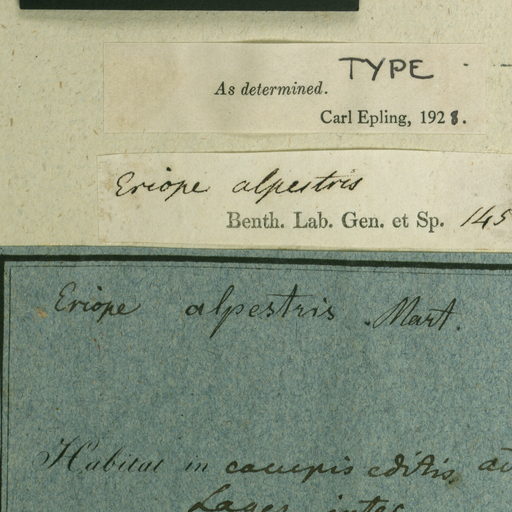 TYPE
As determined.
Carl Epling, 1928.
Eriope alpestris
Benth. Lab. Gen. et Sp. 145
Eriope alpestris . Mart.
Habitat in campis editis,
Lages inter